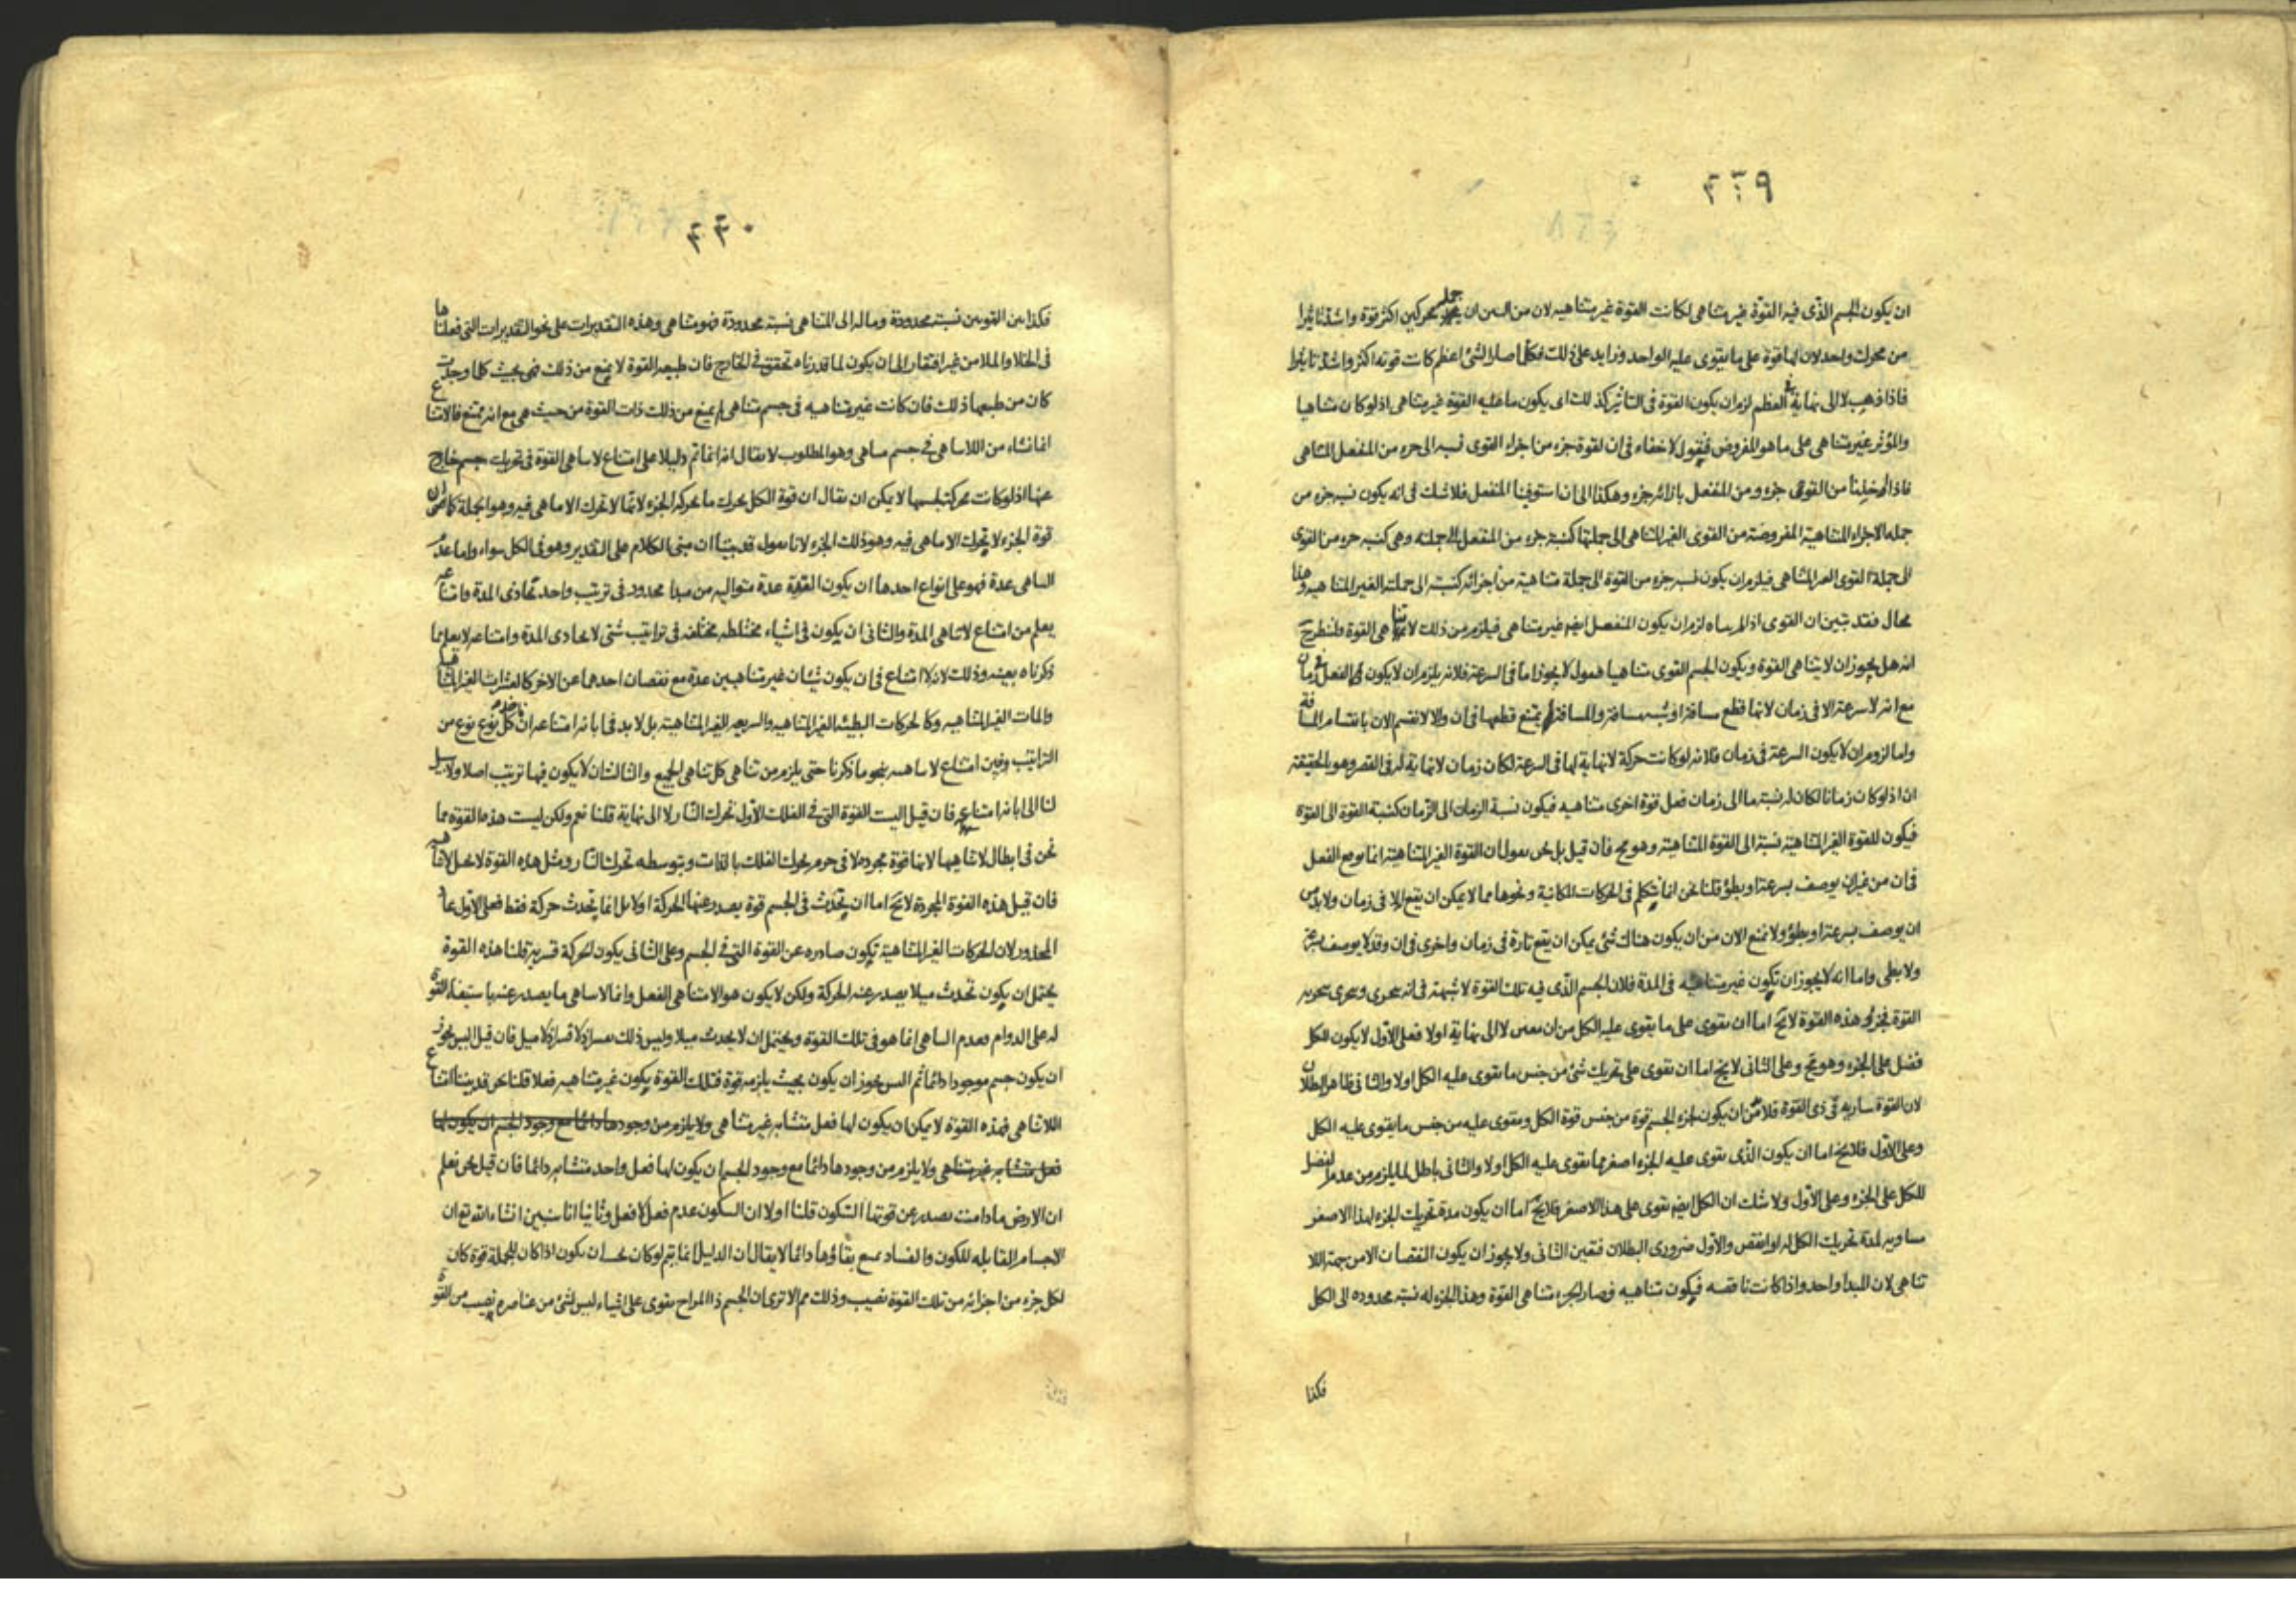 ٤٢٩
ان يكون الجسم الذى فيه القوة غير متناهى لكانت القوة غير متناهيه لان من البين ان محركين اكثر قوة واشد تاثيرا
من محرك واحد لان لها قوة على ما يقوى عليه الواحد وزايد على ذلك فكلما صار الشئ اعظم كانت قوته اكثر واشد تاثيرا
فاذا ذهب لا الى نهاية فى العظم لزم ان يكون القوة فى التأثير كذلك اى يكون ما عليه القوة غير متناهى اذ لو كان متناهيا
والمؤثر غير متناهى على ما هو المفروض فنقول لا خفاء فى ان لقوة جزء من اجزاء القوى نسبه الى جزء من المنفعل المتناهى
فاذا من القوى جزء ومن المنفعل بازائه جزء وهكذا الى ان استوفينا المنفعل فلا شك فى انه يكون نسبه جزء من
جمله الاجزاء المتناهية المفروضة من القوى الغير المتناهى الى جملتها كنسبة جزء من المنفعل الى جملته وهى كنسبه جزء من القوى
الى جملة القوى الغير المتناهى فيلزم ان يكون نسبه جزء من القوة الى جملة متناهية من أجزائه كنسبته الى جملته الغير المتناهيه وهذا
محال فقد تبين ان القوى اذا لم يتناه لزم ان يكون المنفعل ايضا غير متناهى فيلزم من ذلك لا تناهى القوة
انه هل يجوز ان لا يتناهى القوة ويكون الجسم القوى متناهيا فنقول لا يجوز اما فى السرعة فلانه يلزم ان لا يكون الفعل فى زمان
مع انه لا سرعة الا فى زمان لانها قطع مسافة او شبه مسافة والمسافة يمتنع قطعها فى ان والا لانقسم الان بانقسام المسافة
واما لزوم ان لا يكون السرعة فى زمان فلانه لو كانت حركة لا نهاية لها فى السرعة لكان زمان لا نهاية له فى القصر وهو بالحقيقة
ان اذ لو كان زمانا لكان له نسبة ما الى زمان فعل قوة اخرى متناهيه فيكون نسبة الزمان الى الزمان كنسبة القوة الى القوة
فيكون للقوة الغير المتناهية نسبة الى القوة المتناهية وهو مح فان قيل بل نحن نقول ان القوة الغير المتناهية انما يوقع الفعل
فى ان من غير ان يوصف بسرعة او بطؤ قلنا نحن انما نتكلم فى الحركات المكانية ونحوها مما لا يمكن ان يقع الا فى زمان ولا بد من
ان يوصف بسرعة او بطؤ ولا نمنع الان من ان يكون هناك شئ يمكن ان يقع تارة فى زمان واخرى فى ان وقد لا يوصف بسرعة
ولا بطى واما انه لا يجوز ان تكون غير متناهيه فى المدة فلان الجسم الذى فيه تلك القوة لا شبهة فى انه يتجزى ويتجزى بتجزيه
القوة فجزؤ هذه القوة لا يخ اما ان يقوى على ما يقوى عليه الكل من ان معين لا الى نهاية اولا فعلى الاول لا يكون للكل
فضل على الجزء وهو مح وعلى الثانى لا يخ اما ان يقوى على تحريك شئ من جنس ما يقوى عليه الكل اولا والثانى ظاهر البطلان
لان القوة ساريه فى ذى القوة فلا بد من ان يكون لجزء الجسم قوة من جنس قوة الكل ويقوى عليه من جنس ما يقوى عليه الكل
وعلى الاول فلا يخ اما ان يكون الذى يقوى عليه الجزء اصغر مما يقوى عليه الكل اولا والثانى باطل لما يلزم من عدم الفضل
للكل على الجزء وعلى الأول ولا شك ان الكل ايضا يقوى على هذا الاصغر فلا يخ اما ان يكون مدة تحريك الجزء لهذا الاصغر
مساويه لمدة تحريك الكل له او انقص والاول ضرورى البطلان فتعين الثانى ولا يجوز ان يكون النقصان الا من جهة اللا
تناهى لان المبدا واحد واذا كانت ناقصه فيكون متناهيه فصار الجزء متناهى القوة وهذا الجزء له نسبة محدوده الى الكل
فكذا
٤٣٠
فكذا بين القوتين نسبة محدودة وما له الى المتناهى نسبة محدودة فهو متناهى وهذه التقديرات على نحو التقديرات التى فعلناها
فى الخلا والملا من غير افتقار الى ان يكون لما قدرناه تحقق فى الخارج فان طبيعه القوة لا يمنع من ذلك فهى بحيث كلما وجدت
كان من طبعها ذلك فان كانت غير متناهيه فى جسم متناهى لم يمنع من ذلك ذات القوة من حيث هى مع انه ممتنع فالامتناع
انما نشاء من اللاتناهى فى جسم متناهى وهو المطلوب لا يقال انه انما تم دليلا على امتناع لا تناهى القوة فى تحريك جسم خارج
عنها اذ لو كانت محركة لجسمها لا يمكن ان يقال ان قوة الكل يحرك ما يحركه الجزء لانها لا تحرك الا ما هى فيه وهو الجملة كما ان
قوة الجزء لا تحرك الا ما هى فيه وهو ذلك الجزء لانا نقول قد بينا ان مبنى الكلام على التقدير وهو فى الكل سواء واما عدم
التناهى عدة فهو على انواع احدها ان يكون القوة عدة متواليه من مبدا محدود فى ترتيب واحد تحاذى المدة وامتناعه
يعلم من امتناع لا تناهى المدة والثانى ان يكون فى اشياء مختلطه مختلفه فى تراتيب شتى لا يحاذى المدة وامتناعه لا يعلم بما
ذكرناه بعينه وذلك لانه لا امتناع فى ان يكون شيئان غير متناهيين عدة مع نقصان احدهما عن الاخر كالعشرات الغير المتناهيه
والمات الغير المتناهيه وكالحركات البطيئه الغير المتناهيه والسريعه الغير المتناهيه بل لا بد فى ابانه امتناعه ان كل نوع نوع من
التراتيب ونبين امتناع لا تناهيه بنحو ما ذكرنا حتى يلزم من تناهى كل تناهى الجميع والثالث ان لا يكون فيها ترتيب اصلا ولا سبيل
لنا الى ابانه امتناعه فان قيل اليست القوة التى فى الفلك الاول تحرك النار لا الى نهاية قلنا نعم ولكن ليست هذه القوة مما
نحن فى ابطال لا تناهيها لانها قوة مجرده لا فى جرم يحرك الفلك بالذات وبتوسطه تحرك النار ومثل هذه القوة
فان قيل هذه القوة المجردة لا يخ اما ان تحدث فى الجسم قوة يصدر عنها الحركة اولا بل انما يحدث حركة فقط فعلى الاول عاد
المحذور لان الحركات الغير المتناهية تكون صادره عن القوة التى فى الجسم وعلى الثانى يكون الحركة قسريه قلنا هذه القوة
يحتمل ان يكون تحدث ميلا يصدر عنه الحركة ولكن لا يكون هو اللامتناهى الفعل وانما لا تناهى ما يصدر عنه باستيفاء القوة
له على الدوام فعدم التناهى انما هو فى تلك القوة ويحتمل ان لا يحدث ميلا وليس ذلك بقسر اذ لا قسر اذ لا ميل فان قيل اليس يجوز
ان يكون جسم موجودا دائما ثم اليس يجوز ان يكون بحيث يلزمه قوة فتلك القوة يكون غير متناهيه فعلا قلنا نحن قد بينا امتناع
اللاتناهى فهذه القوة لا يمكن ان يكون لها فعل متشابه غير متناهى ولا يلزم من وجودها دائما مع وجود الجسم ان يكون لها
فعل متشابه غير متناهى ولا يلزم من وجودها دائما مع وجود الجسم ان يكون لها فعل واحد متشابه دائما فان قيل نحن نعلم
ان الارض ما دامت يصدر عن قوتها السكون قلنا اولا ان السكون عدم فعل لا فعل وثانيا انا سنبين انشاء الله تع ان
الاجسام القابله للكون والفساد يمتنع بقاؤها دائما لا يقال ان الدليل انما يتم لو كان يجب ان يكون اذا كان للجملة قوة كان
لكل جزء من اجزائه من تلك القوة نصيب وذلك مم الا ترى ان الجسم ذا المزاج يقوى على اشياء ليس لشئ من عناصره نصيب من القوة